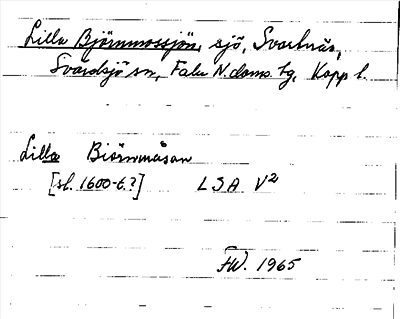 Lilla Björnmossjön, sjö, Svartnäs,
Svärdsjö sn, Falu N. doms. lg, Kopp l.
Lilla Biörnmåsan
[sl. 1600-t.?] LSA V2
FW. 1965